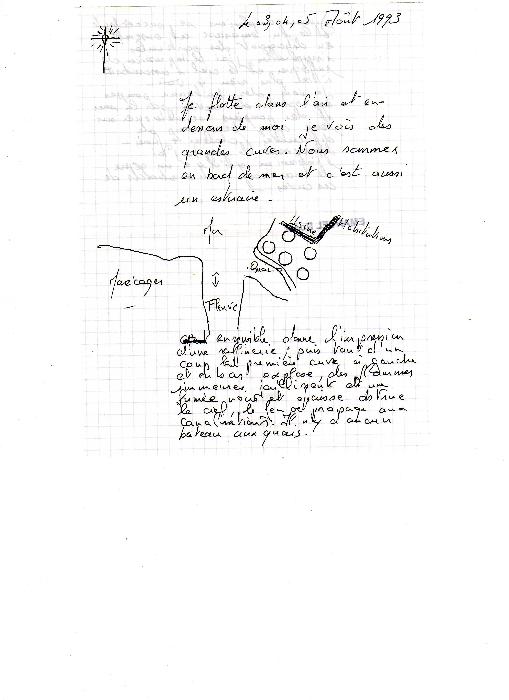 Le 03, 04, 05 Août 1993
Je flotte dans l'air et en-
dessous de moi je vois des
grandes cuves. Nous sommes
en bord de mer et c'est aussi
un estuaire.
Mer
Usine
Habitations
Quai
Marécages
Fleuve
ensemble donne l'impression
d'une raffinerie, puis tout d'un
coup la première cuve à gauche
et en bas explose, des flammes
immenses jaillissent et une
fumée noire et épaisse obstrue
le ciel, le feu se propage aux
canalisations. Il n'y a aucun
bateau aux quais.